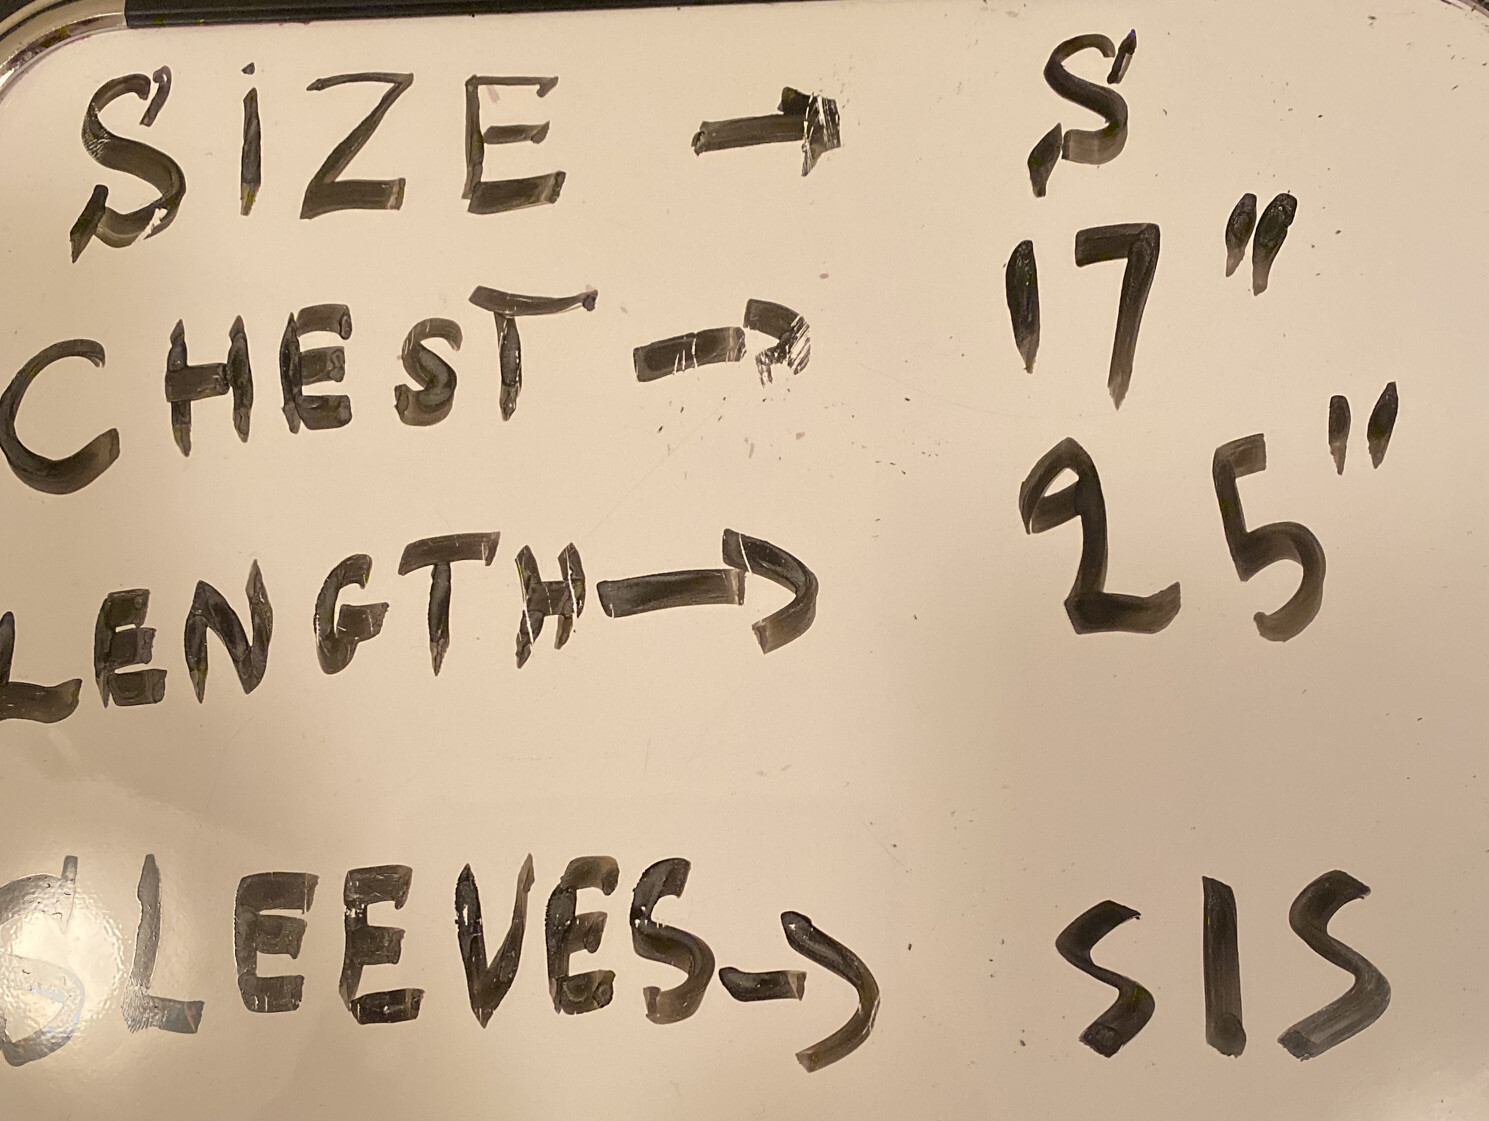 SiZE → S
CHEST → 17"
LENGTH → 25"
SLEEVES → S|S